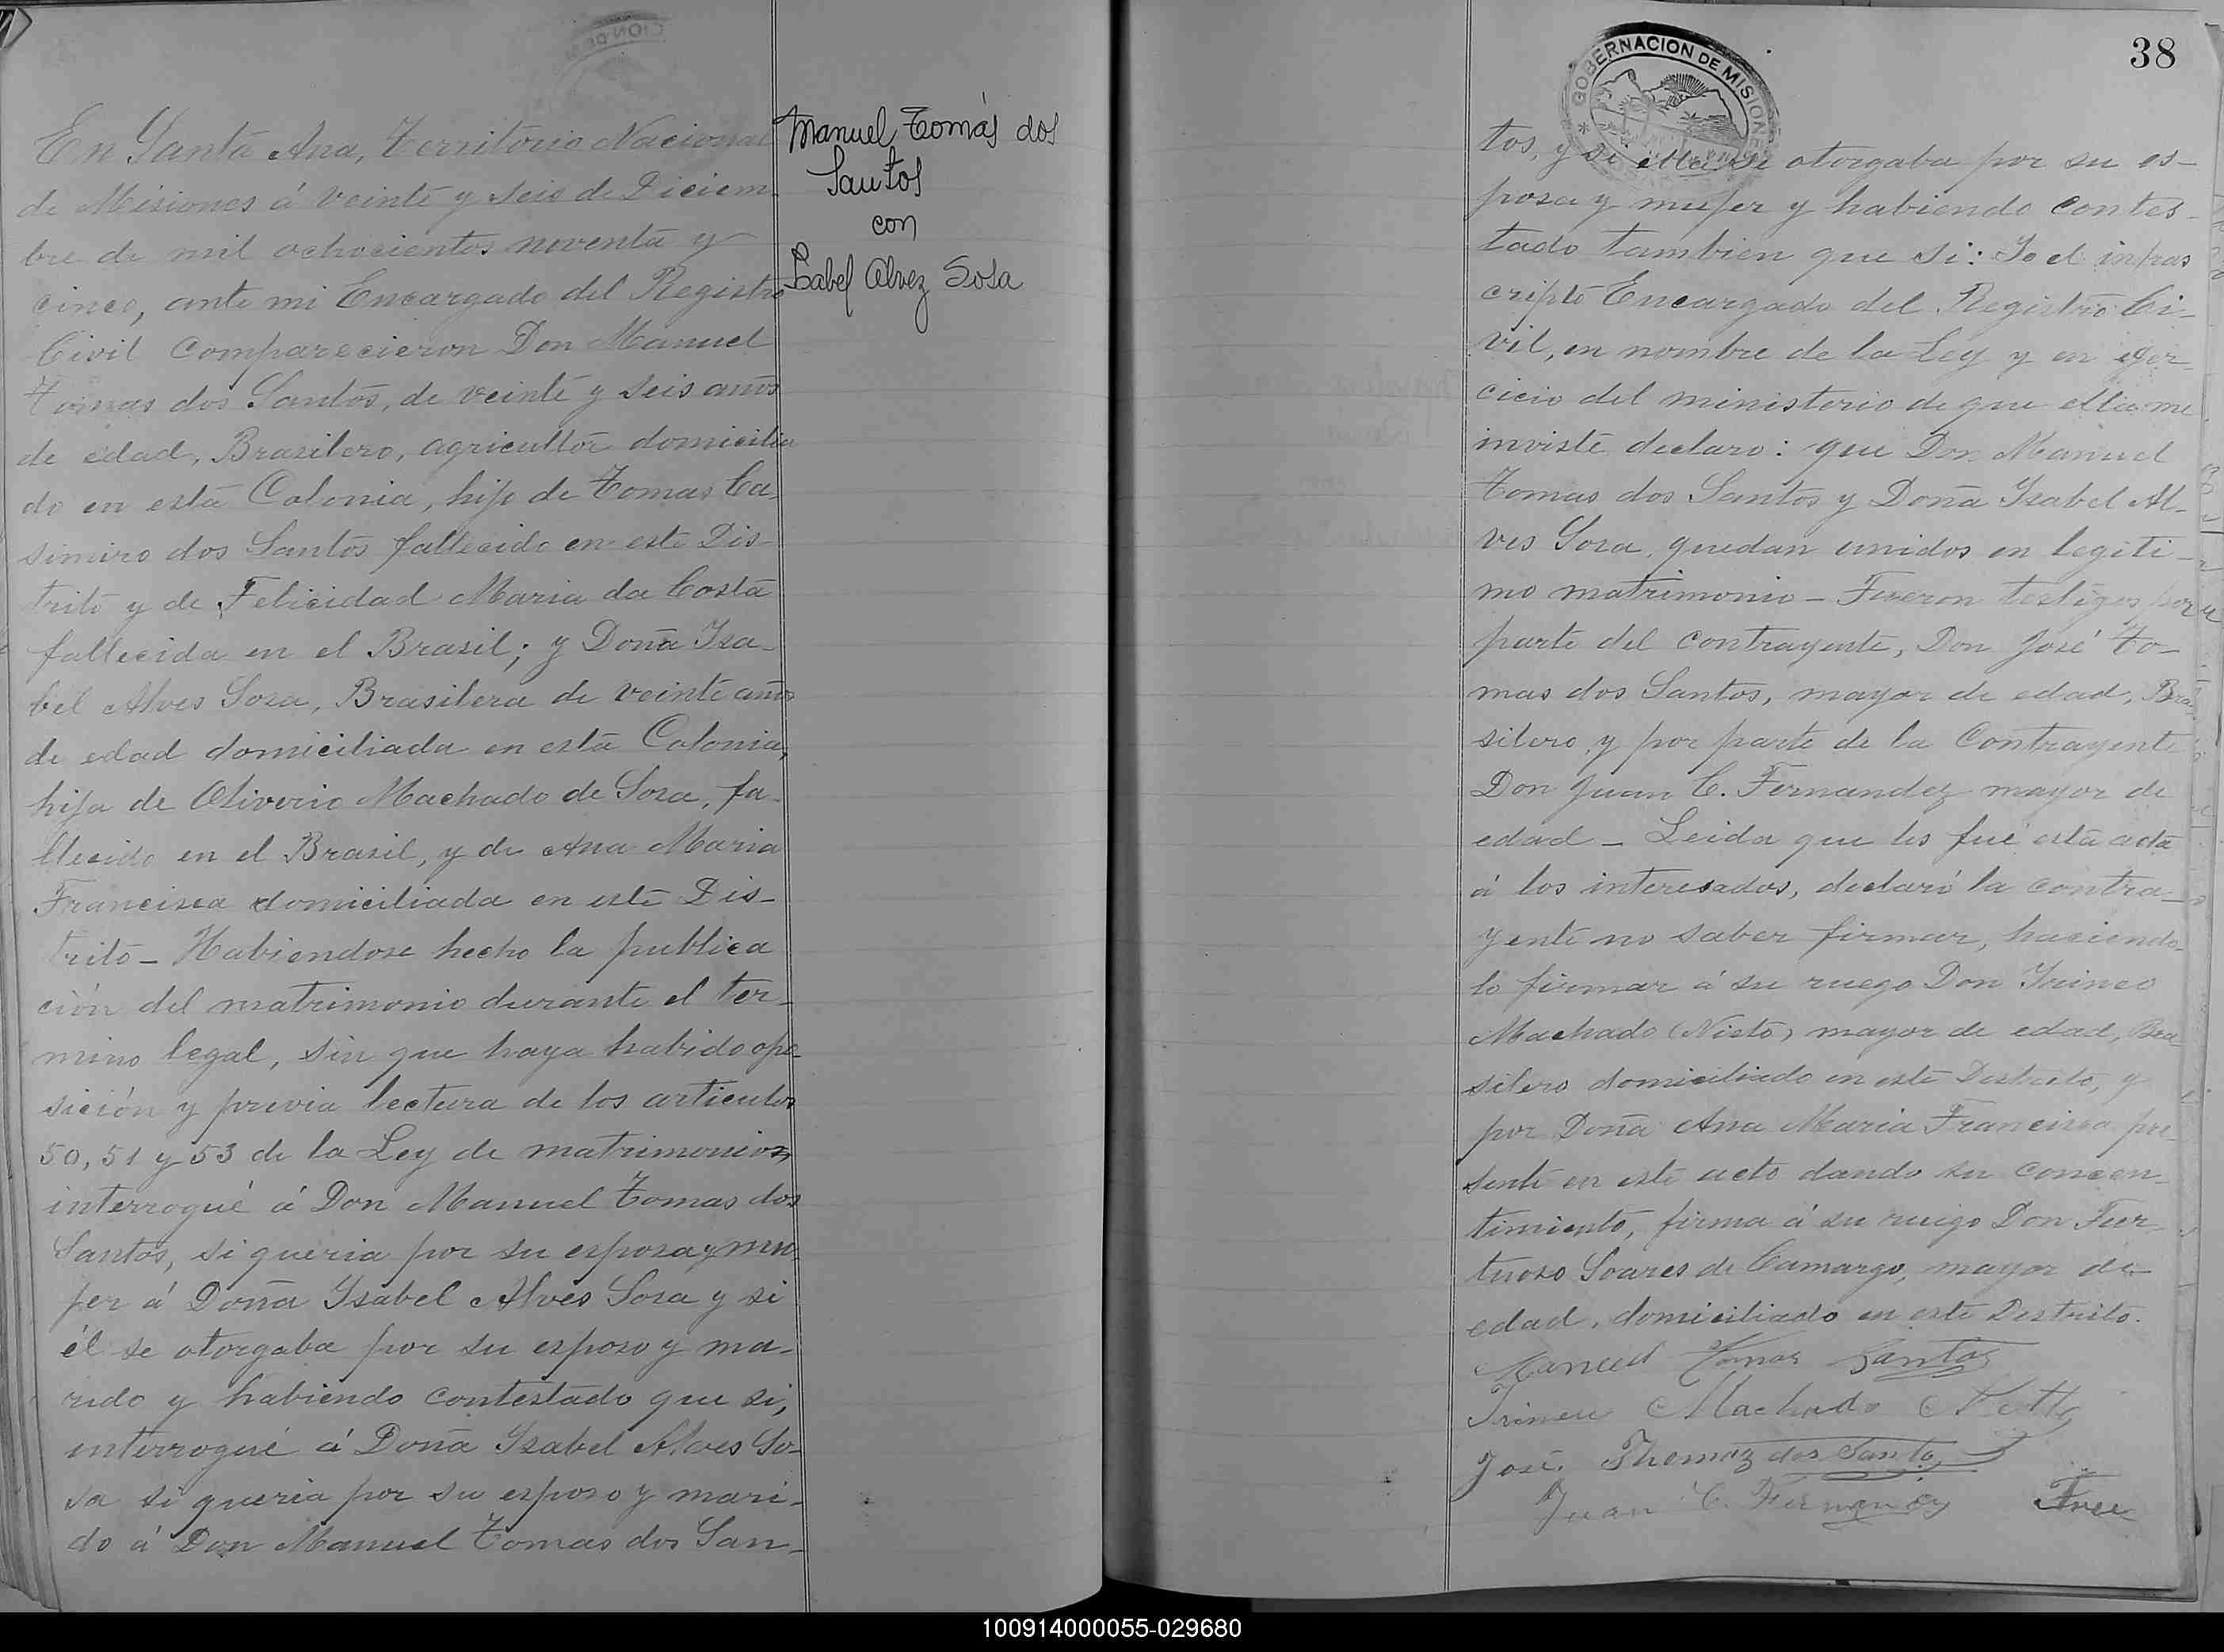 En Santa Ana, Territorio Nacional
de Misiones á veinte y seis de Diciem-
bre de mil ochocientos noventa y
cinco, ante mi Encargado del Registro
Civil Comparecieron Don Manuel
Tomas dos Santos, de veinte y seis años
de edad, Brasilero, agricultor domicilia
do en esta Colonia, hijo de Tomas Ca-
simiro dos Santos fallecido en este Dis-
trito y de Felicidad Maria da Costa
fallecida en el Brasil; y Doña Isa-
bel Alves Sosa, Brasilera de veinte años
de edad domiciliada en esta Colonia,
hija de Oliverio Machado de Sosa, fa-
llecido en el Brasil, y de Ana Maria
Francisca domiciliada en este Dis-
trito - Habiendose hecho la publica
ción del matrimonio durante el ter-
mino legal, sin que haya habido opo-
sición y previa lectura de los articulos
50, 51 y 53 de la Ley de matrimonios,
interrogué á Don Manuel Tomas dos
Santos, si queria por su esposa y mu-
jer á Doña Ysabel Alves Sosa y si
él se otorgaba por su esposo y ma-
rido y habiendo contestado que si,
interrogué á Doña Ysabel Alves So-
sa si queria por su esposo y mari-
do á Don Manuel Tomas dos San-
Manuel Tomás dos
Santos
con
Isabel Alvez Sosa
38
GOBERNACION DE MISIONES
tos, y si ella se otorgaba por su es-
posa y mujer y habiendo contes-
tado tambien que si: Yo el infras
cripto Encargado del Registro Ci-
vil, en nombre de la Ley y en ejer-
cicio del ministerio de que ella me
inviste declaro: que Don Manuel
Tomas dos Santos y Doña Ysabel Al-
ves Sosa, quedan unidos en legiti-
mo matrimonio - Fueron testigos por
parte del contrayente, Don José To-
mas dos Santos, mayor de edad, Bra-
silero y por parte de la Contrayente
Don Juan C. Fernandez mayor de
edad - Leida que les fué esta acta
á los interesados, declaró la contra-
yente no saber firmar, haciendo-
lo firmar á su ruego Don Irineo
Machado (Nieto) mayor de edad, Bra-
silero domiciliado en este Distrito, y
por Doña Ana Maria Francisca pre-
sente en este acto dando su concen-
timiento, firma á su ruego Don Fur-
tuoso Soares de Camargo, mayor de
edad, domiciliado en este Distrito.
Manuel Tomas Santos
Irineu Machado Netto
José Thomaz dos Santos
Juan C. Fernandez
100914000055-029680